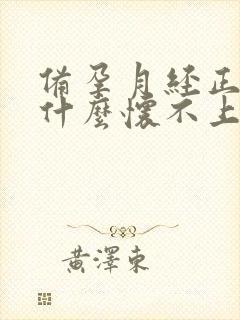 備孕月経正
什麼懷不上
黃澤東